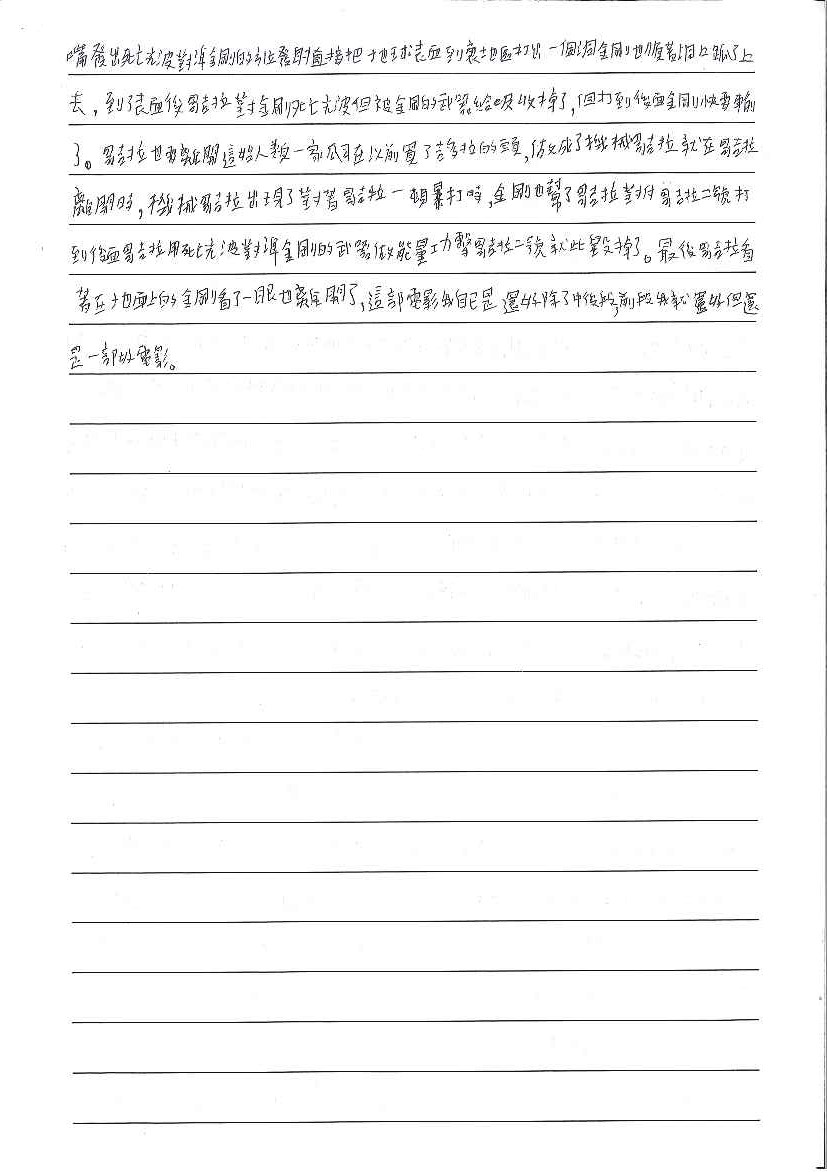 嘴發出死亡光波對準金剛的方位發射直接把地球表面到裏地區打出一個洞金剛也順著洞口跳了上
去，到了表面後哥吉拉對金剛死亡光波但被金剛的武器給吸收掉了，但打到後面金剛快要輸
了。哥吉拉也要離開這始人類一家公司在以前買了吉多拉的頭，做成了機械哥吉拉就在哥吉拉
離開時，機械哥吉拉出現了對著哥吉拉一頓暴打時，金剛也幫了哥吉拉對付哥吉拉二號打
到後面哥吉拉用死亡光波對準金剛的武器做能量功擊哥吉拉二號就此毀掉了。最後哥吉拉看
著在地面上的金剛看了一眼也離開了，這部電影我自己是還好除了中後段，前段我就還好但還
是一部好電影。